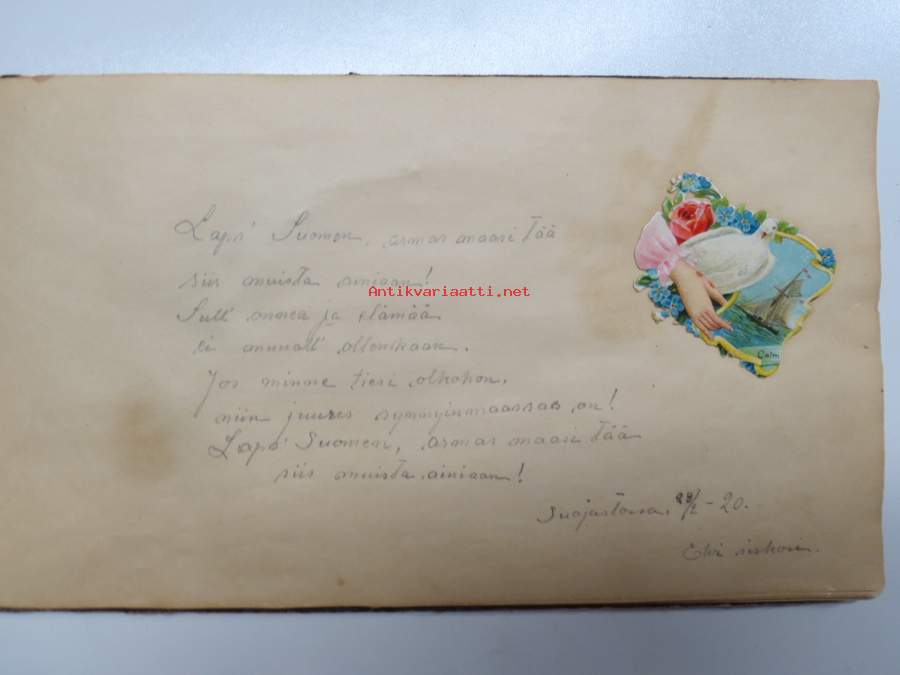 Laps' Suomen, armas maasi tää
siis muista ainiaan!
Antikvariaatti.net
Sull' onnea ja elämää
ei muuall' ollenkaan.
Jos minne tiesi olkohon,
niin juures synnyinmaassas on!
Laps' Suomen, armas maasi tää
siis muista ainiaan!
29/2 -20.
siskosi.
Calm